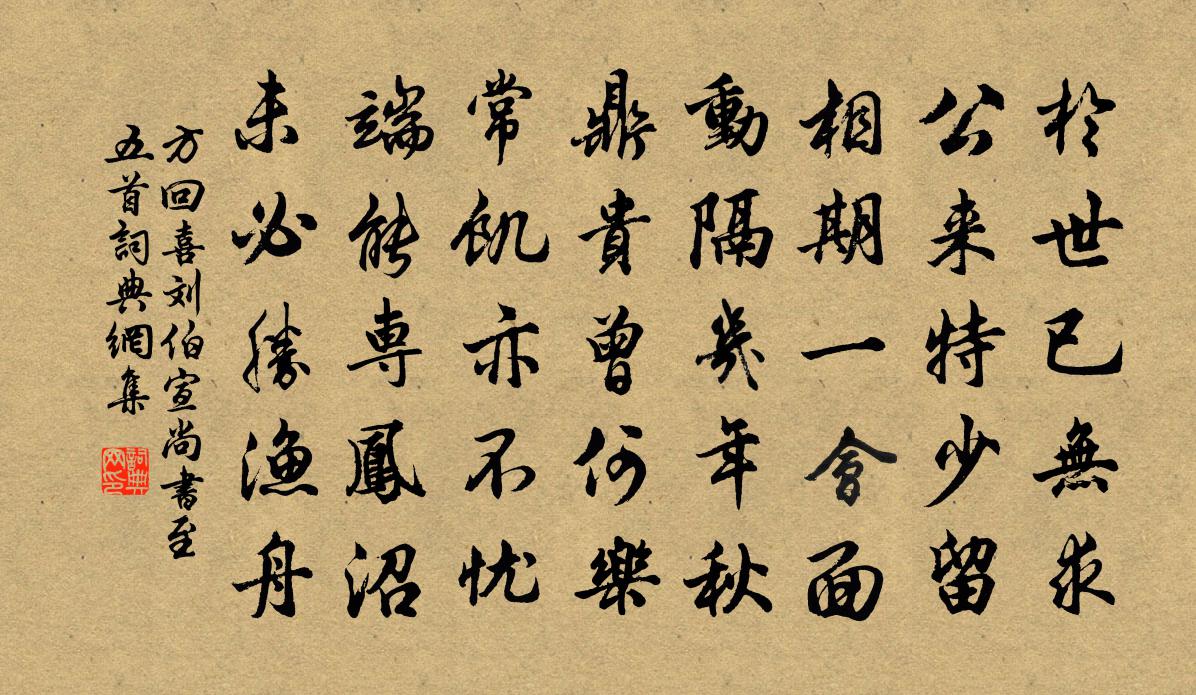 於世已無求
公来特少留
相期一會面
動隔幾年秋
鼎貴曾何樂
常飢亦不忧
端能専鳳沼
未必勝漁舟
方回喜刘伯宣尚書至
五首詞典網集
詞典网印